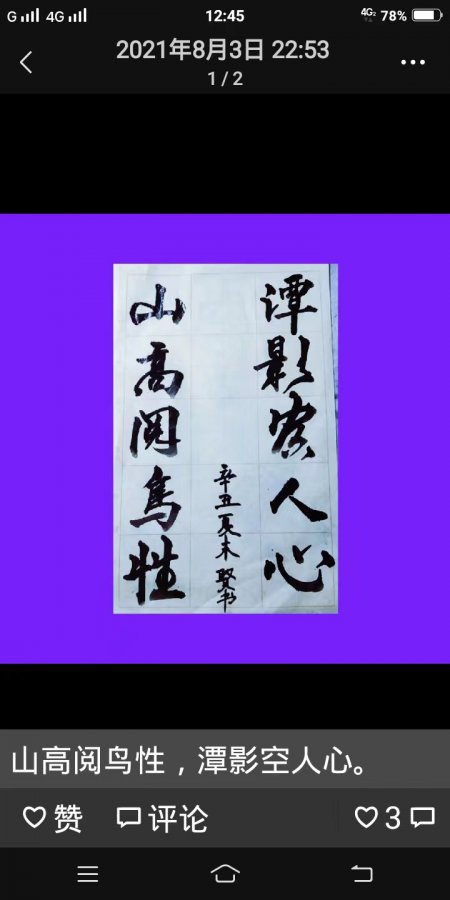 G 4G 12:45 4G2 78%
2021年8月3日 22:53
1 / 2
潭影察人心
辛丑夏末 贤书
山高阅鸟性
山高阅鸟性，潭影空人心。
赞 评论 3